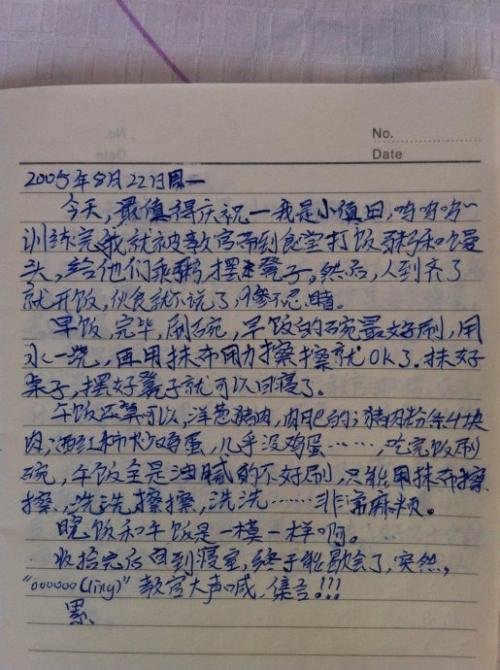 No.
Date
2005年8月22日周一
今天,最值得庆祝一我是小值日,呜呜呜~
训练完我就被教官带到食堂打饭粥和馒
头,给他们乘粥,摆凳子。然后,人到齐了
就开饭,伙食就不说了,惨不忍睹。
早饭,完毕,刷碗,早饭的碗最好刷,用
水一浇,再用抹布用力擦擦就OK了.抹好
桌子,摆好凳子就可以回寝了。
午饭还算可以,洋葱猪肉,肉肥的;猪肉粉条4块
肉;西红柿炒鸡蛋,几乎没鸡蛋……,吃完饭刷
碗,午饭全是油腻的不好刷,只能用抹布擦
擦,洗洗擦擦,洗洗……非常麻烦。
晚饭和午饭是一模一样啊。
收拾完后回到寝室,终于能歇会了,突然,
"oooooo(ling)"教官大声喊,集合!!!
累